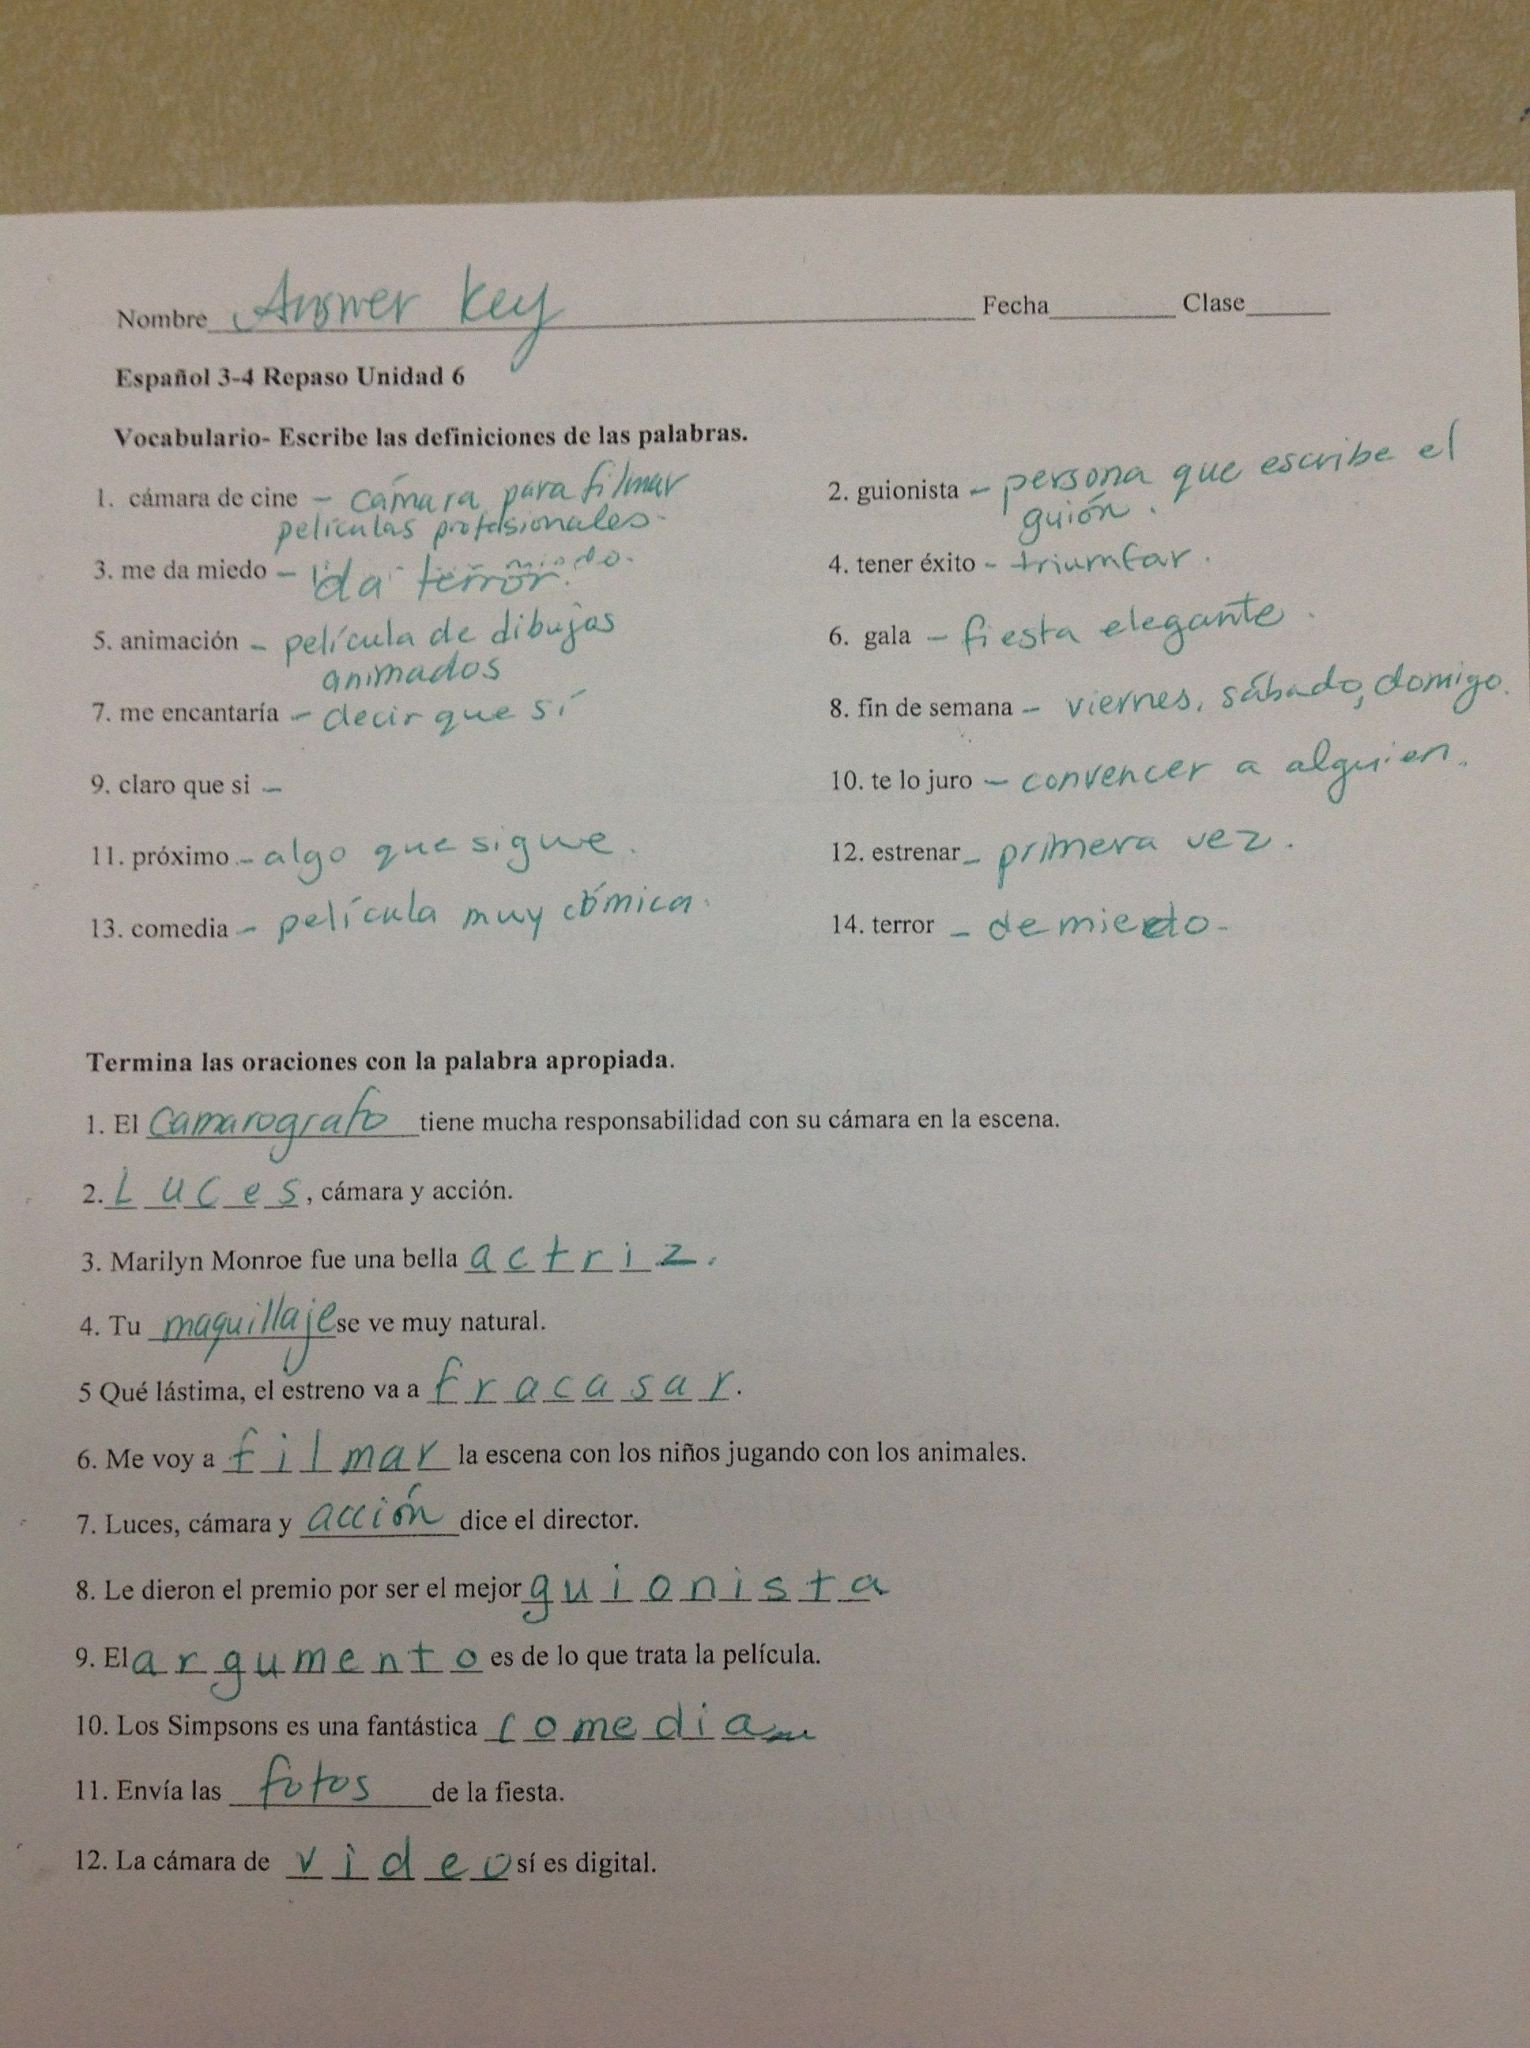 Nombre Answer Key Fecha Clase
Español 3-4 Repaso Unidad 6
Vocabulario- Escribe las definiciones de las palabras.
1. cámara de cine - cámara para filmar 2. guionista - persona que escribe el
películas profesionales. guión.
3. me da miedo - da terror. 4. tener éxito - triumfar.
5. animación - película de dibujos 6. gala - fiesta elegante.
animados
7. me encantaría - decir que sí 8. fin de semana - viernes, sábado, domigo.
9. claro que si - 10. te lo juro - convencer a alguien.
11. próximo - algo que sigue. 12. estrenar - primera vez.
13. comedia - película muy cómica. 14. terror - de miedo.
Termina las oraciones con la palabra apropiada.
1. El camarografo tiene mucha responsabilidad con su cámara en la escena.
2. Luces, cámara y acción.
3. Marilyn Monroe fue una bella actriz.
4. Tu maquillaje se ve muy natural.
5 Qué lástima, el estreno va a fracasar.
6. Me voy a filmar la escena con los niños jugando con los animales.
7. Luces, cámara y acción dice el director.
8. Le dieron el premio por ser el mejor guionista
9. El argumento es de lo que trata la película.
10. Los Simpsons es una fantástica comedia
11. Envía las fotos de la fiesta.
12. La cámara de video sí es digital.